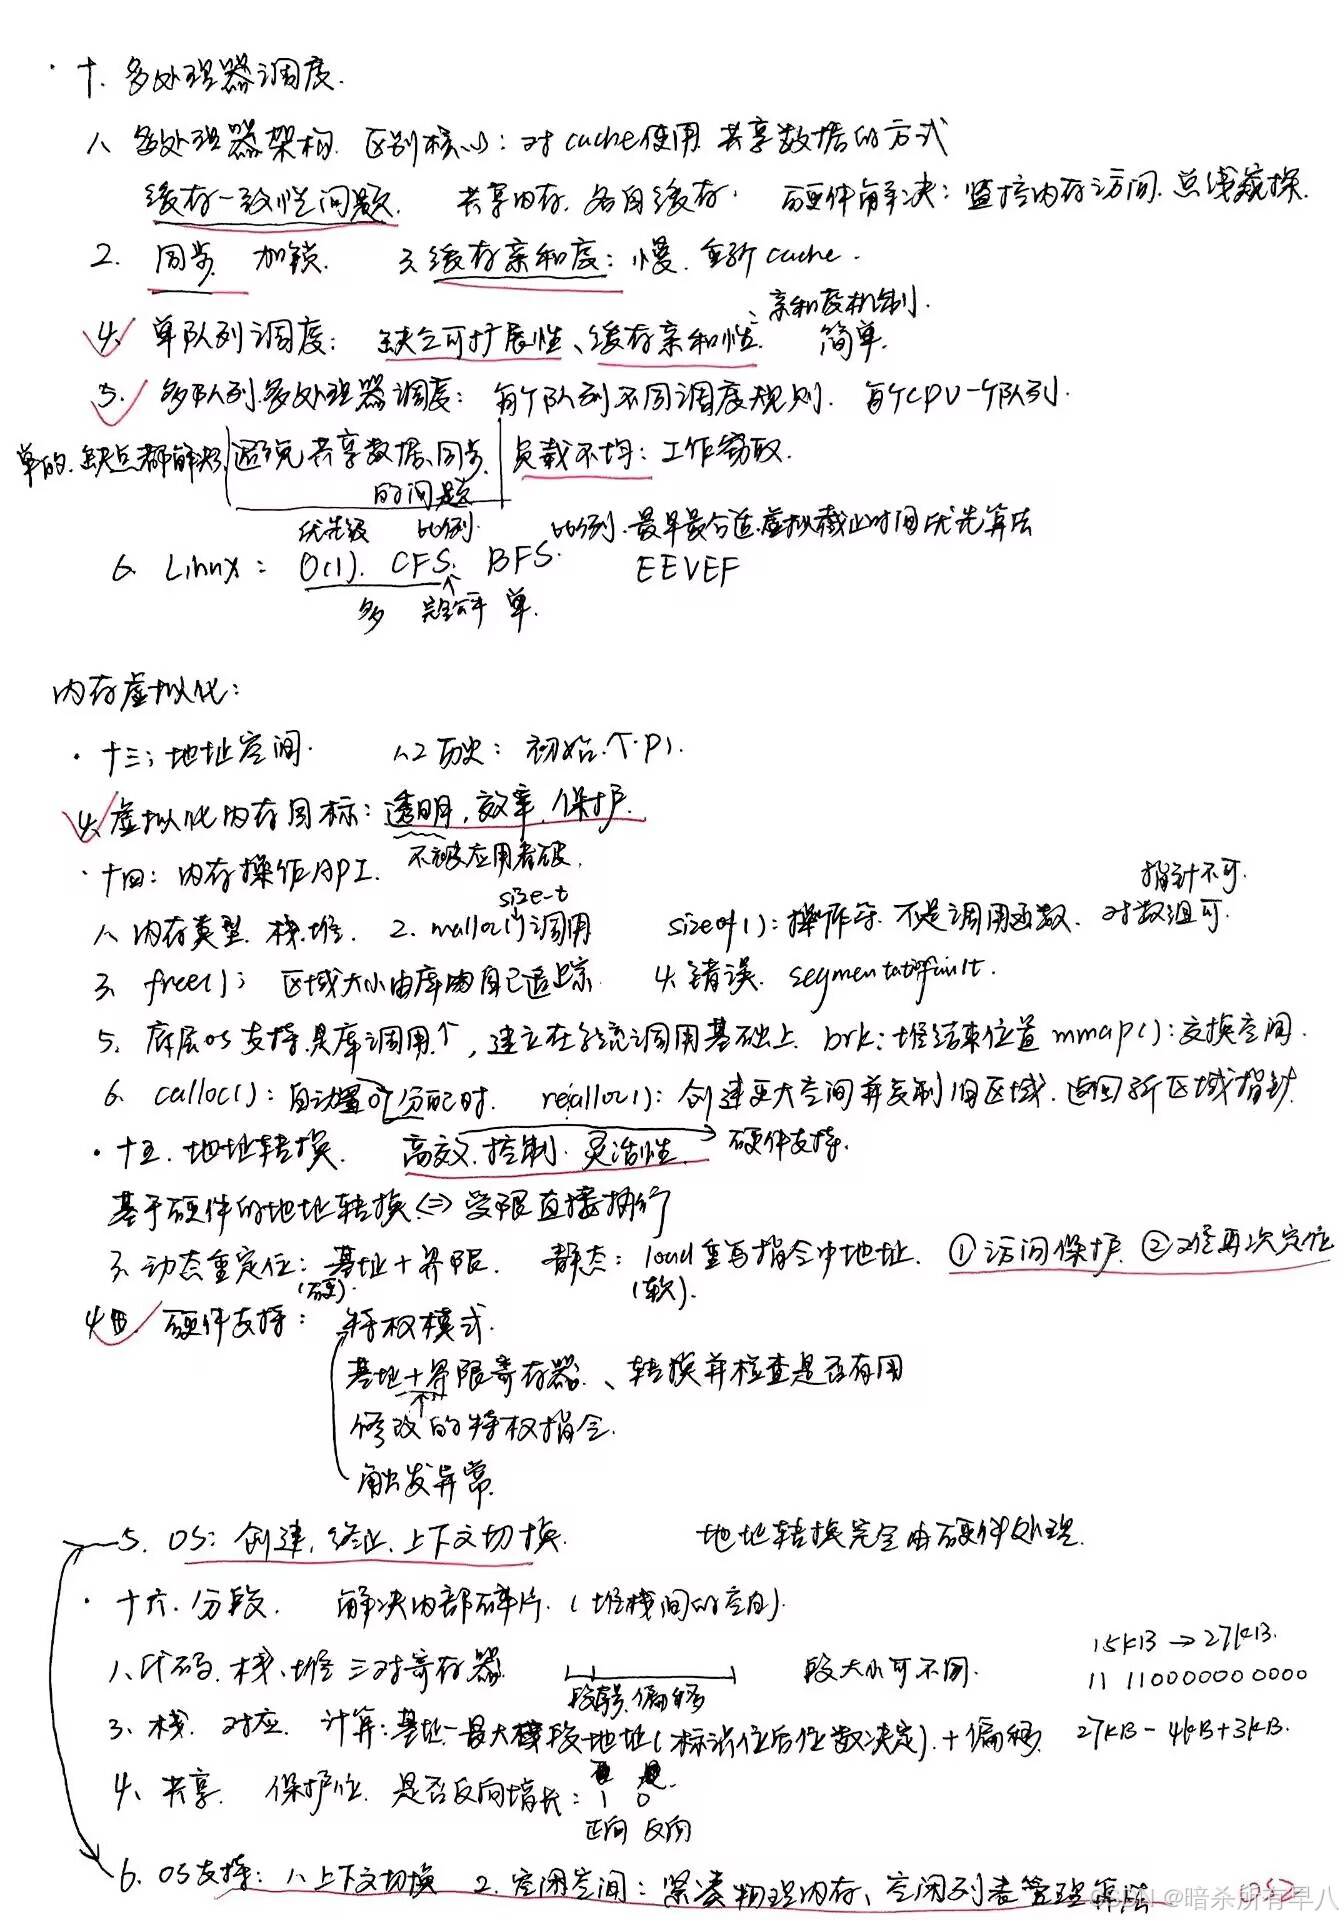 · 十. 多处理器调度.
1. 多处理器架构. 区别核心: 对cache使用 共享数据的方式
缓存一致性问题. 共享内存. 各自缓存. 硬件解决: 监控内存访问. 总线窥探.
2. 同步 加锁. 3. 缓存亲和度: 慢. 重新cache.
亲和度机制.
4. 单队列调度: 缺乏可扩展性、缓存亲和性. 简单.
5. 多队列多处理器调度: 每个队列不同调度规则. 每个CPU一个队列.
单的缺点都解决 避免共享数据、同步的问题 负载不均: 工作窃取.
优先级 比例. 比例. 最早最合适虚拟截止时间优先算法
6. Linux: O(1). CFS. BFS. EEVEF
多 完全公平 单.
内存虚拟化:
· 十三: 地址空间. 1.2 历史: 初始.
4. 虚拟化内存目标: 透明, 效率, 保护.
不被应用者破.
· 十四: 内存操作API.
size-t 指针不可.
1. 内存类型. 栈.堆. 2. malloc()调用 sizeof(): 操作符. 不是调用函数. 对数组可.
3. free(); 区域大小由库内自己追踪. 4. 错误. segmentation fault.
5. 底层OS支持. 是库调用, 建立在系统调用基础上. brk: 堆结束位置 mmap(): 交换空间.
6. calloc(): 自动置0 分配时. realloc(): 创建更大空间并复制旧区域. 返回新区域指针.
· 十五. 地址转换. 高效. 控制. 灵活性. 硬件支持.
基于硬件的地址转换 <=> 受限直接执行
3. 动态重定位: 基址+界限. 静态: load重写指令中地址. ①访问保护. ②难再次定位
(硬). (软).
4. 硬件支持: 特权模式.
基址+界限寄存器、转换并检查是否有用
修改的特权指令.
触发异常.
5. OS: 创建. 终止. 上下文切换. 地址转换完全由硬件处理.
· 十六. 分段. 解决内部碎片. (堆栈间的空间).
15KB → 27KB.
1. 代码. 栈、堆 三对寄存器 段大小可不同. 11 11000000 0000
段号 偏移
3. 栈. 对应. 计算: 基址-最大段地址(标识位后位数决定). + 偏移 27KB - 4KB + 3KB.
4. 共享. 保护位. 是否反向增长: 1 0
正向 反向
6. OS支持: 1. 上下文切换 2. 空闲空间: 紧凑物理内存、空闲列表管理算法
CSDN @暗杀所有早八